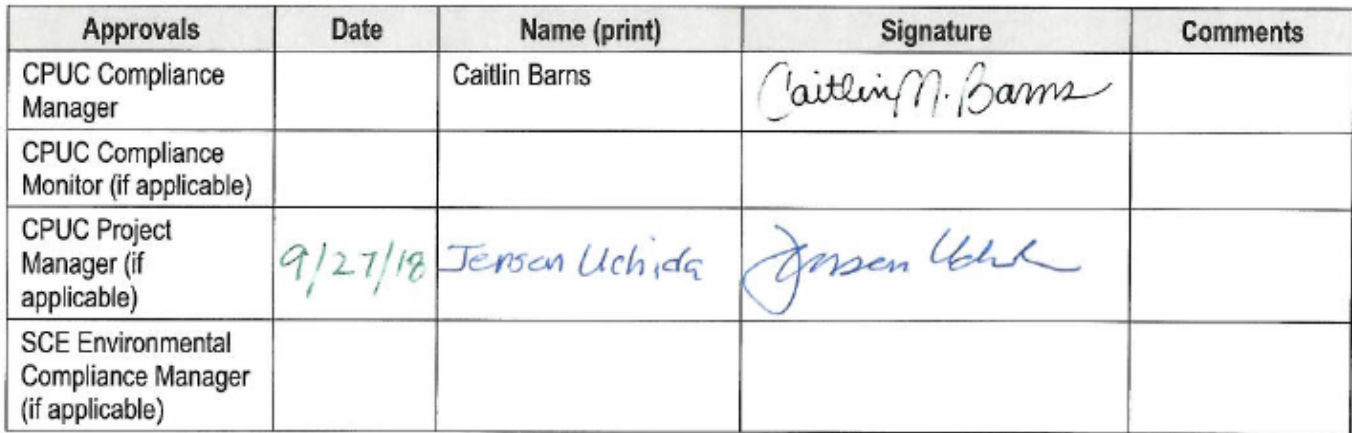 Approvals Date Name (print) Signature Comments
CPUC Compliance Manager Caitlin Barns Caitlin M. Barns
CPUC Compliance Monitor (if applicable)
CPUC Project Manager (if applicable) 9/27/18 Jensen Uchida Jensen Uchida
SCE Environmental Compliance Manager (if applicable)